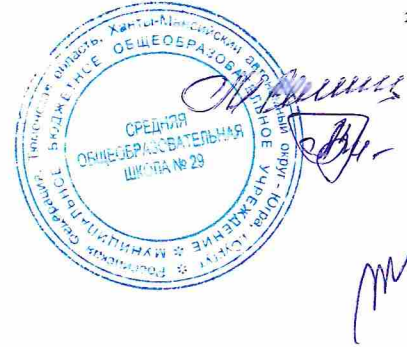 Российская Федерация, Тюменская область, Ханты-Мансийский автономный округ - Югра, г.Сургут
МУНИЦИПАЛЬНОЕ БЮДЖЕТНОЕ ОБЩЕОБРАЗОВАТЕЛЬНОЕ УЧРЕЖДЕНИЕ
СРЕДНЯЯ
ОБЩЕОБРАЗОВАТЕЛЬНАЯ
ШКОЛА № 29